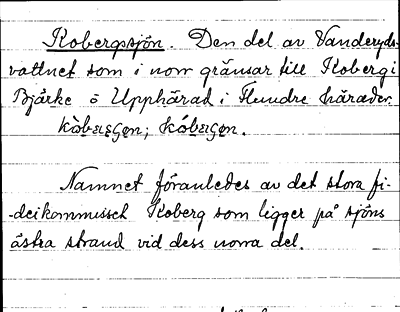 Kobergssjön. Den del av Vanderyds-
vattnet som i norr gränsar till Koberg i
Bjärke o Upphärad i Flundre härader.
kòbersʂøn; kóberʂøn.
Namnet föranledes av det stora fi-
-deikommisset Koberg som ligger på sjöns
östra strand vid dess norra del.